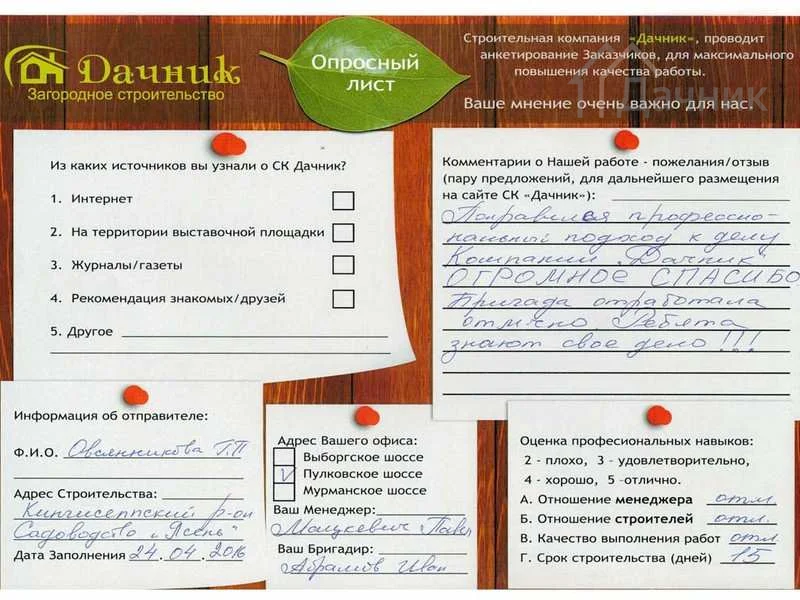 Дачник
Загородное строительство
Опросный
лист
Строительная компания «Дачник», проводит
анкетирование Заказчиков, для максимального
повышения качества работы.
Ваше мнение очень важно для нас.
Дачник
Из каких источников вы узнали о СК Дачник?
1. Интернет
2. На территории выставочной площадки
3. Журналы/газеты
4. Рекомендация знакомых/друзей
5. Другое
Комментарии о Нашей работе - пожелания/отзыв
(пару предложений, для дальнейшего размещения
на сайте СК «Дачник»):
Понравился профессио-
нальный подход к делу
Компании „Дачник"
ОГРОМНОЕ СПАСИБО
Бригада отработала
отлично Ребята
знают свое дело!!!
Информация об отправителе:
Ф.И.О. Овсянникова Г.П
Адрес Строительства:
Кингисеппский р-он
Садоводство „Ясень"
Дата Заполнения 24.04.2016
Адрес Вашего офиса:
Выборгское шоссе
V Пулковское шоссе
Мурманское шоссе
Ваш Менеджер:
Мацкевич Павел
Ваш Бригадир:
Абрамов Иван
Оценка професиональных навыков:
2 - плохо, 3 - удовлетворительно,
4 - хорошо, 5 -отлично.
А. Отношение менеджера отл.
Б. Отношение строителей отл.
В. Качество выполнения работ отл
Г. Срок строительства (дней) 15